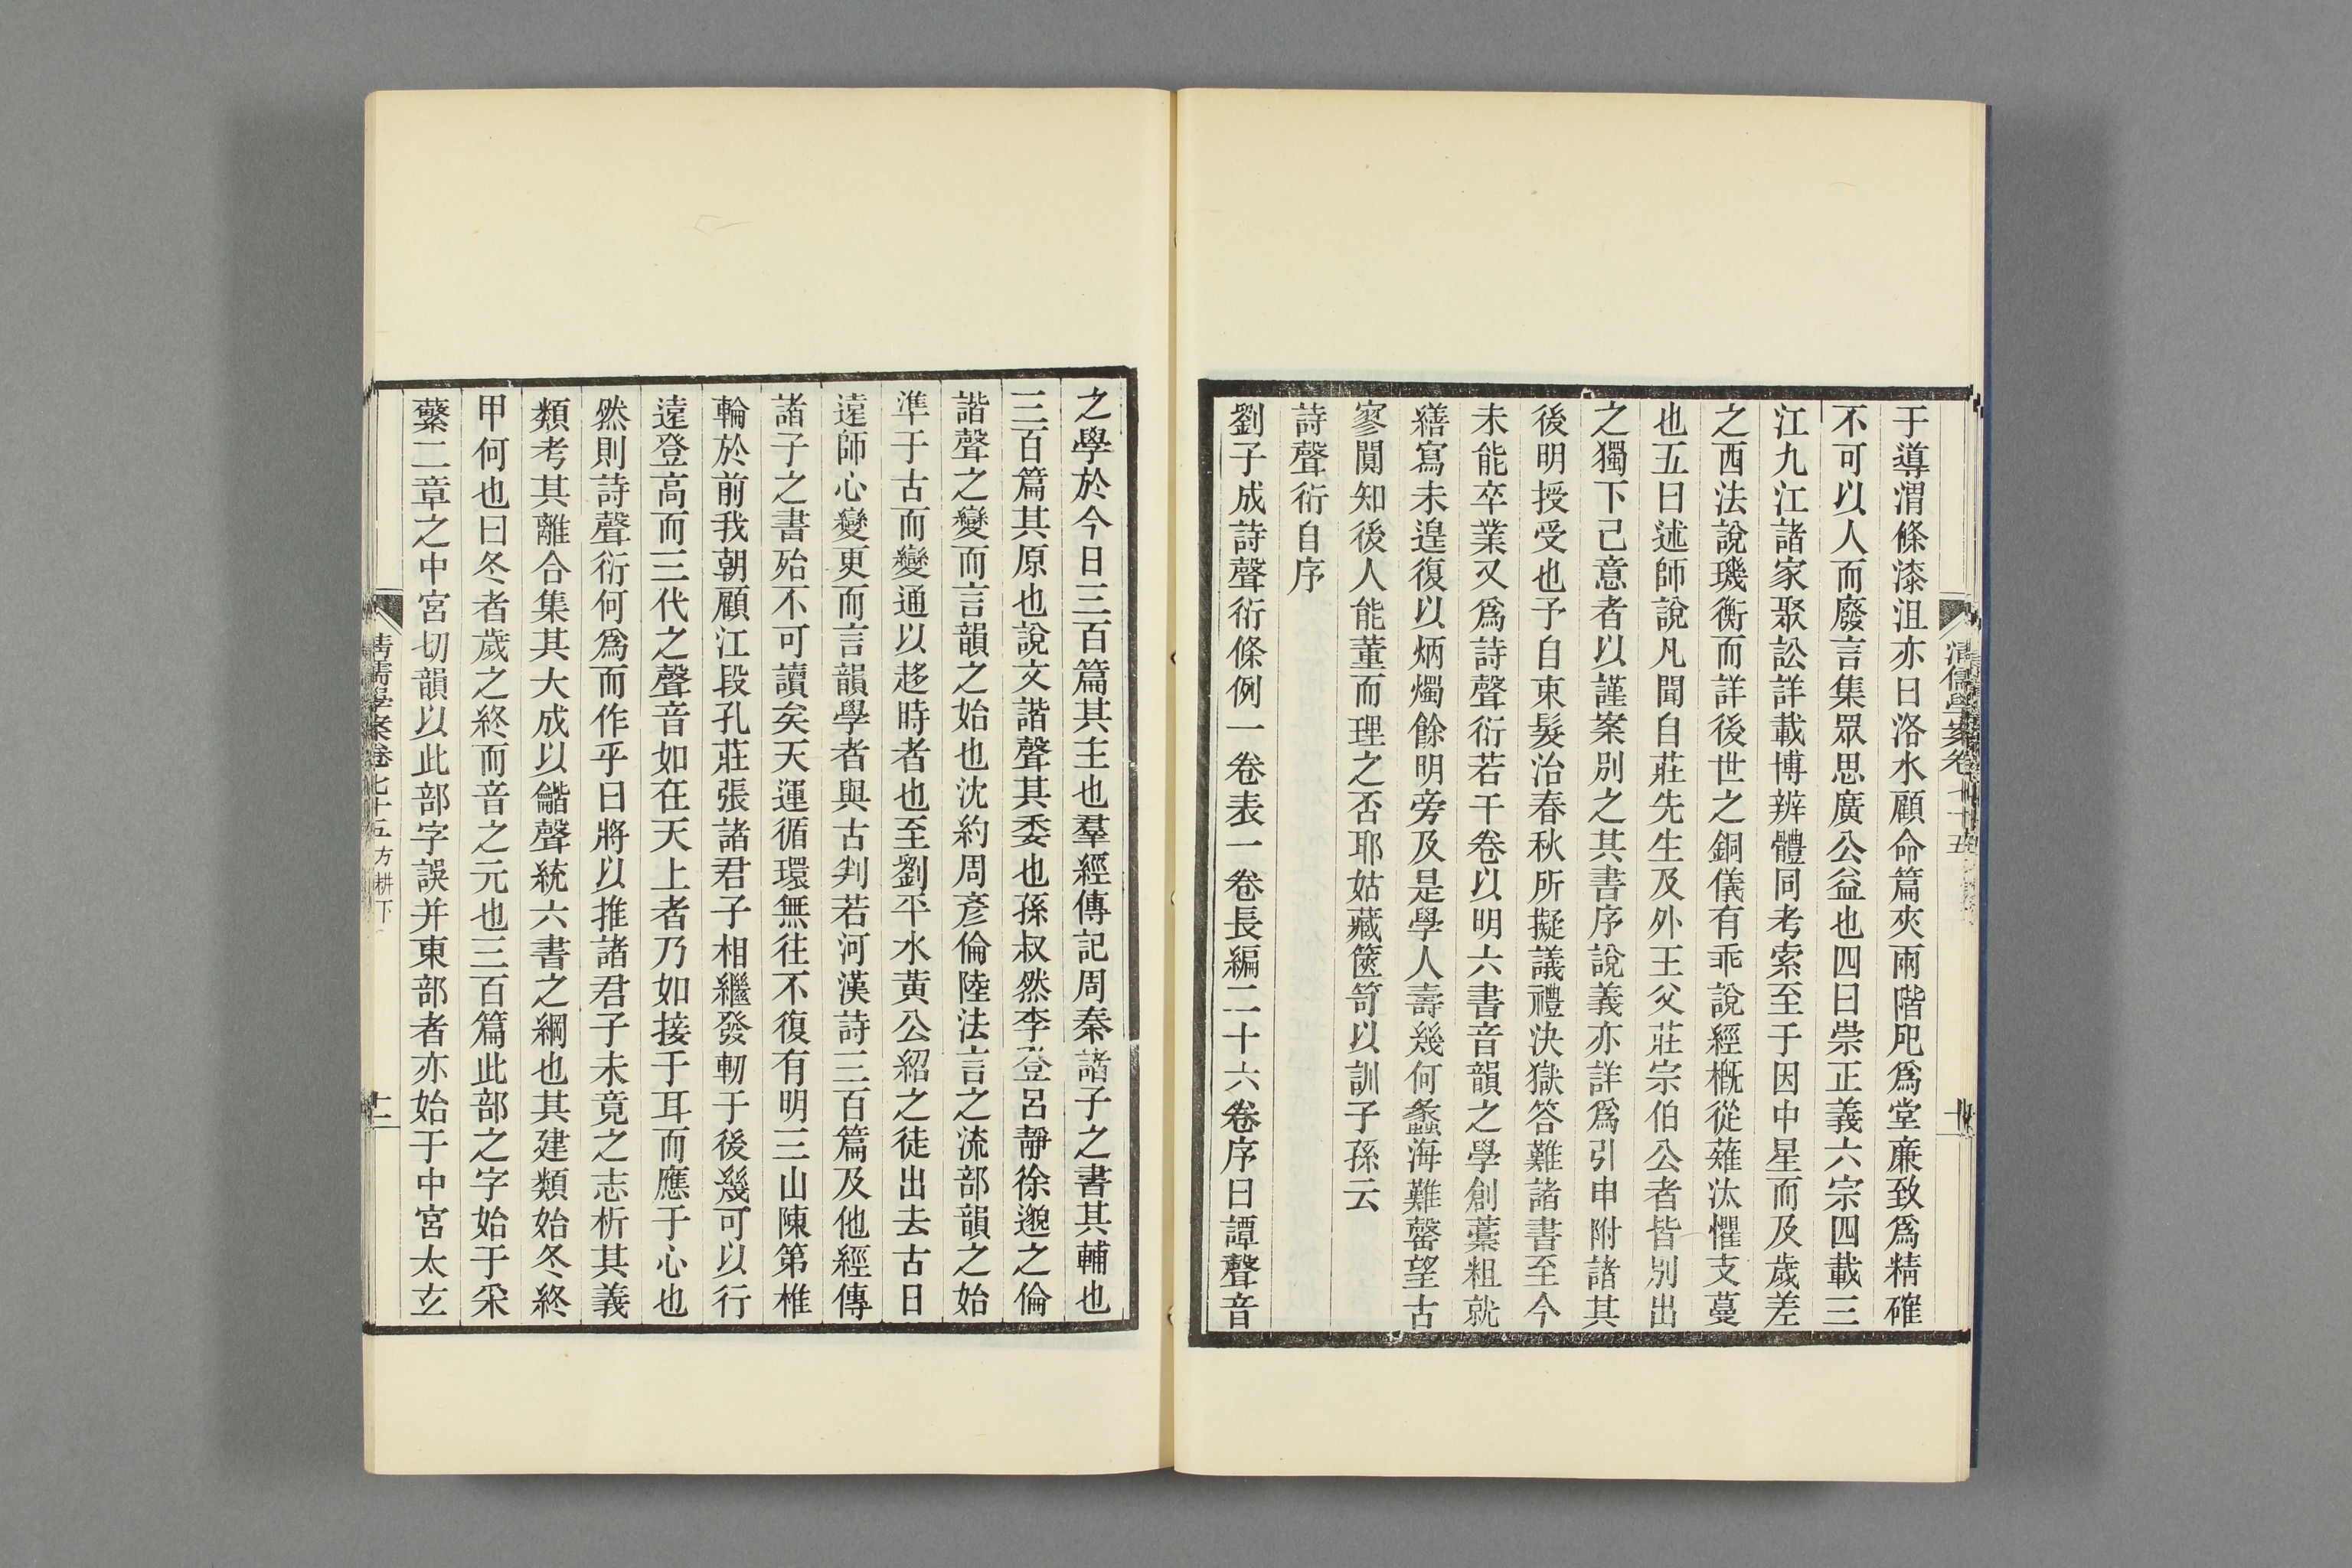 于導渭條漆沮亦曰洛水顧命篇夾兩階戺爲堂廉致爲精確
不可以人而廢言集眾思廣公益也四曰崇正義六宗四載三
江九江諸家聚訟詳載博辨體同考索至于因中星而及歲差
之西法說璣衡而詳後世之銅儀有乖說經槪從薙汰懼支蔓
也五曰述師說凡聞自莊先生及外王父莊宗伯公者皆別出
之獨下己意者以謹案別之其書序說義亦詳爲引申附諸其
後明授受也予自束髮治春秋所擬議禮決獄答難諸書至今
未能卒業又爲詩聲衍若干卷以明六書音韻之學創藁粗就
繕寫未遑復以炳燭餘明旁及是學人壽幾何蠡海難罄望古
寥闃知後人能董而理之否耶姑藏篋笥以訓子孫云
詩聲衍自序
劉子成詩聲衍條例一卷表一卷長編二十六卷序曰譚聲音
之學於今日三百篇其主也羣經傳記周秦諸子之書其輔也
三百篇其原也說文諧聲其委也孫叔然李登呂靜徐邈之倫
諧聲之變而言韻之始也沈約周彥倫陸法言之流部韻之始
準于古而變通以趍時者也至劉平水黃公紹之徒出去古日
遠師心變更而言韻學者與古判若河漢詩三百篇及他經傳
諸子之書殆不可讀矣天運循環無往不復有明三山陳第椎
輪於前我朝顧江段孔莊張諸君子相繼發軔于後幾可以行
遠登高而三代之聲音如在天上者乃如接于耳而應于心也
然則詩聲衍何爲而作乎曰將以推諸君子未竟之志析其義
類考其離合集其大成以龤聲統六書之綱也其建類始冬終
甲何也曰冬者歲之終而音之元也三百篇此部之字始于采
蘩二章之中宮切韻以此部字誤并東部者亦始于中宮太玄
清儒學案卷七十五 方耕下